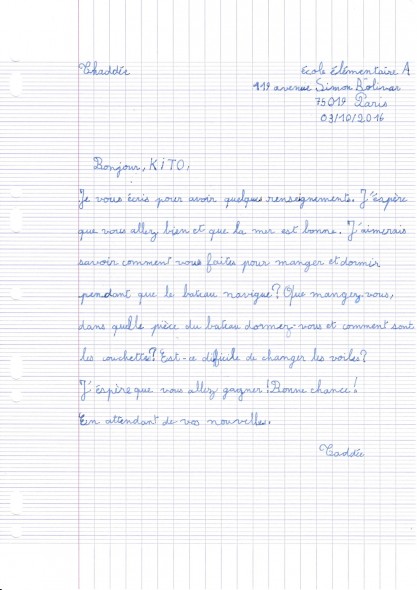 Thaddée
Ecole Élémentaire A
119 avenue Simon Bolivar
75019 Paris
03/10/2016
Bonjour, KiTO,
Je vous écris pour avoir quelques renseignements. J'éspère
que vous allez bien et que la mer est bonne. J'aimerais
savoir comment vous faites pour manger et dormir
pendant que le bateau navigue? Que mangez-vous,
dans quelle pièce du bateau dormez-vous et comment sont
les couchettes? Est-ce difficile de changer les voiles?
J'éspère que vous allez gagner! Bonne chance!
En attendant de vos nouvelles.
Taddée